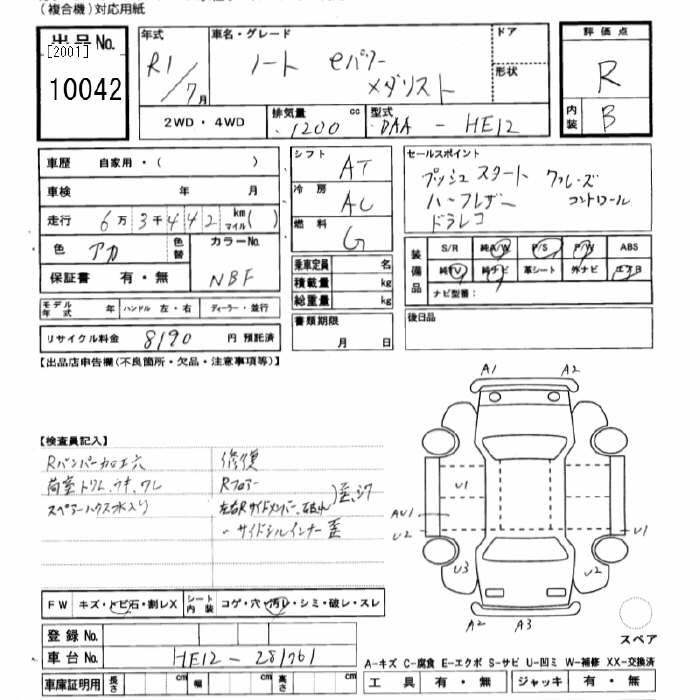 (複合機)対応用紙
出品No.
[2001]
10042
年式
R1/7月
車名・グレード
ノート eパワー
メダリスト
ドア
形状
評価点
R
内装
B
2WD・4WD
排気量
1200
cc
型式
DAA - HE12
車歴 自家用・( )
車検 年 月
走行 6万3千442 km マイル( )
色 アカ
色替
カラーNo.
NBF
保証書 有・無
モデル年式 年
ハンドル 左・右
ディーラー・並行
リサイクル料金 8190 円 預託済
シフト AT
冷房 AC
燃料 G
乗車定員 名
積載量 kg
総重量 kg
書類期限
月 日
セールスポイント
プッシュスタート クルーズ
ハーフレザー コントロール
ドラレコ
装備品
S/R 純A/W P/S P/W ABS
純TV 純ナビ 革シート 外ナビ エアB
ナビ型番:
後日品
【出品店申告欄(不良箇所・欠品・注意事項等)】
【検査員記入】
Rバンパー加工穴
荷室トリム、ウキ、ワレ
スペアーハウス水入り
修復
Rフロアー
左右Rサイドメンバー
サイドシルインナー歪
A1 A2
U1
AU1
U2
U1
U3
U2
A2 A3
スペア
FW キズ・トビ石・割レX
シート内装 コゲ・穴・汚レ・シミ・破レ・スレ
登録No.
車台No. HE12-281761
車庫証明用 長さ cm 幅 cm 高さ cm
A-キズ C-腐食 E-エクボ S-サビ U-凹ミ W-補修 XX-交換済
工具 有・無 ジャッキ 有・無